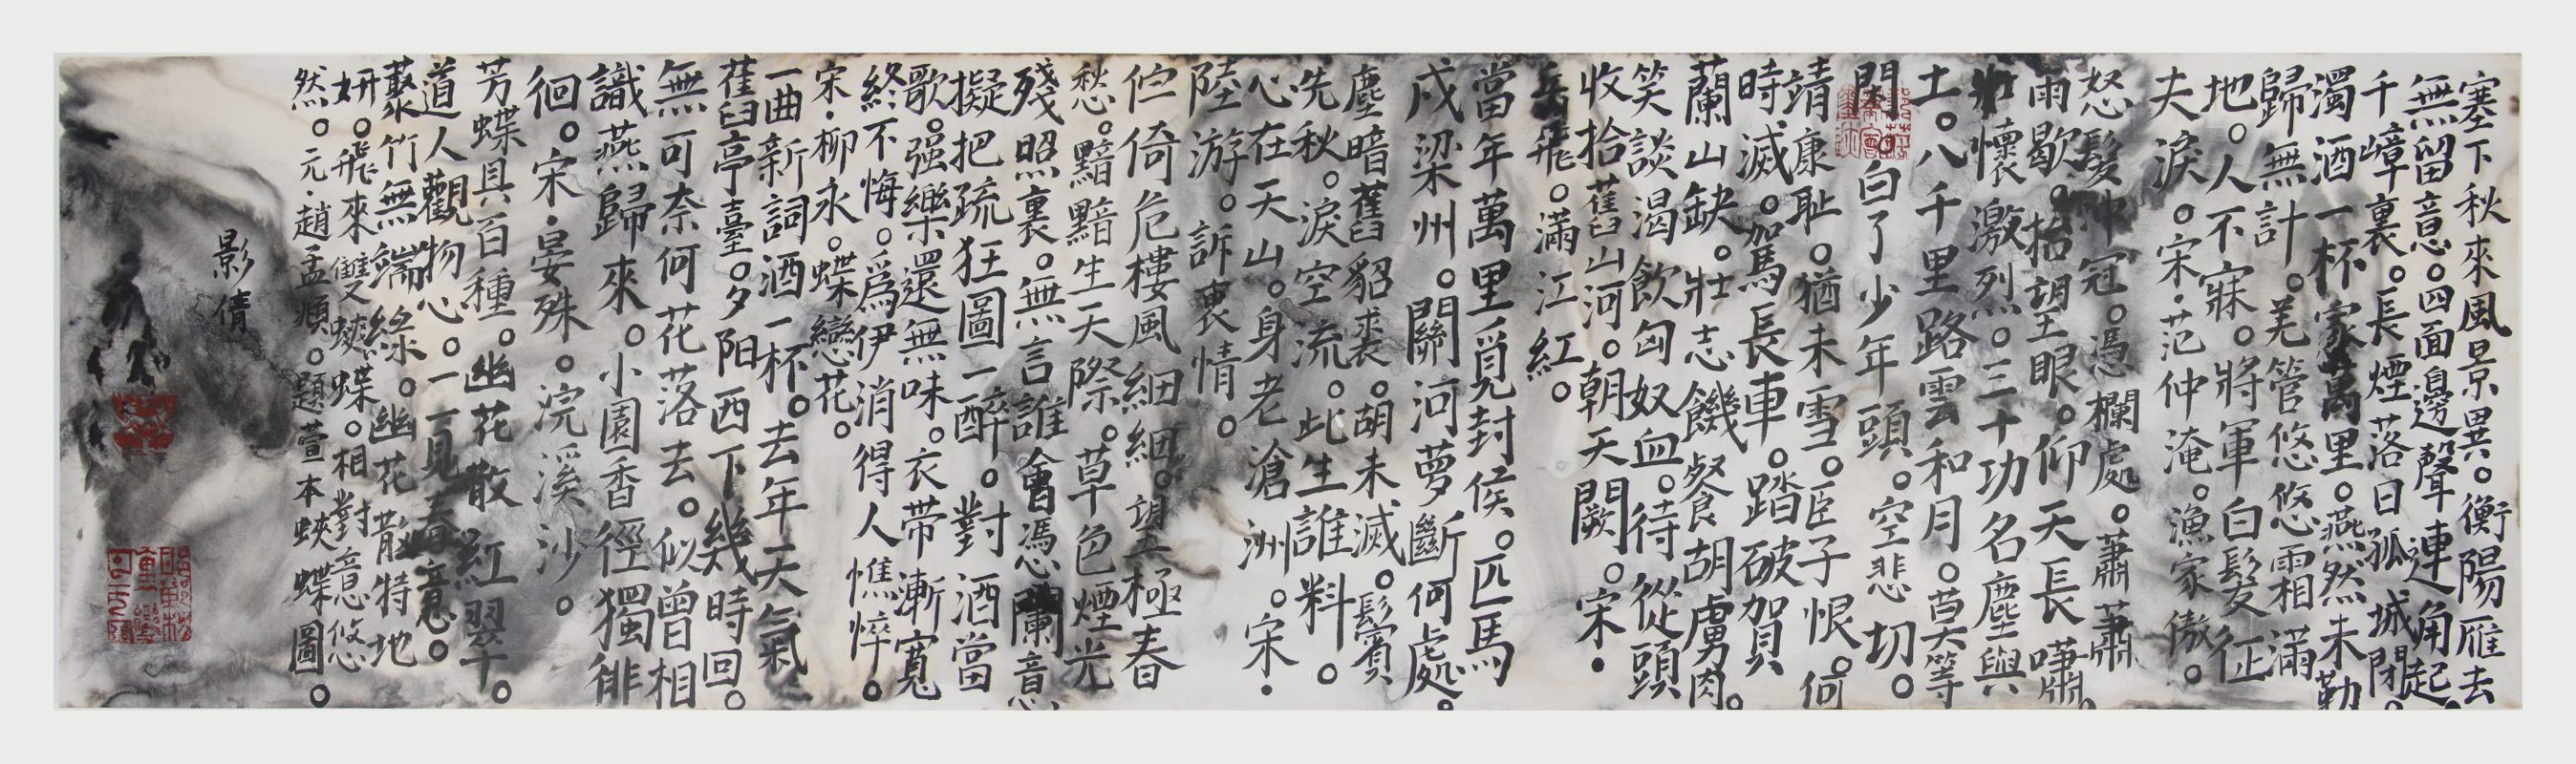 塞下秋來風景異。衡陽雁去
無留意。四面邊聲連角起。
千嶂裏。長煙落日孤城閉。
濁酒一杯家萬里。燕然未勒
歸無計。羌管悠悠霜滿
地。人不寐。將軍白髮征
夫淚。宋·范仲淹。漁家傲。
怒髮冲冠。憑欄處。蕭蕭
雨歇。抬望眼。仰天長嘯。
壯懷激烈。三十功名塵與
土。八千里路雲和月。莫等
閒。白了少年頭。空悲切。
靖康耻。猶未雪。臣子恨。何
時滅。駕長車。踏破賀
蘭山缺。壯志饑餐胡虜肉。
笑談渴飲匈奴血。待從頭
收拾舊山河。朝天闕。宋·
岳飛。滿江紅。
當年萬里覓封侯。匹馬
戍梁州。關河夢斷何處。
塵暗舊貂裘。胡未滅。鬢
先秋。淚空流。此生誰料。
心在天山。身老滄洲。宋·
陸游。訴衷情。
伫倚危樓風細細。望極春
愁。黯黯生天際。草色煙光
殘照裏。無言誰會憑闌意。
擬把疏狂圖一醉。對酒當
歌。强樂還無味。衣带漸寬
終不悔。爲伊消得人憔悴。
宋·柳永。蝶戀花。
一曲新詞酒一杯。去年天氣
舊亭臺。夕陽西下幾時回。
無可奈何花落去。似曾相
識燕歸來。小園香徑獨徘
徊。宋·晏殊。浣溪沙。
芳蝶具百種。幽花散紅翠。
道人觀物心。一一見春意。
叢竹無端綠。幽花散特地
妍。飛來雙蛺蝶。相對意悠
然。元·趙孟頫。題萱本蛺蝶圖。
影倩